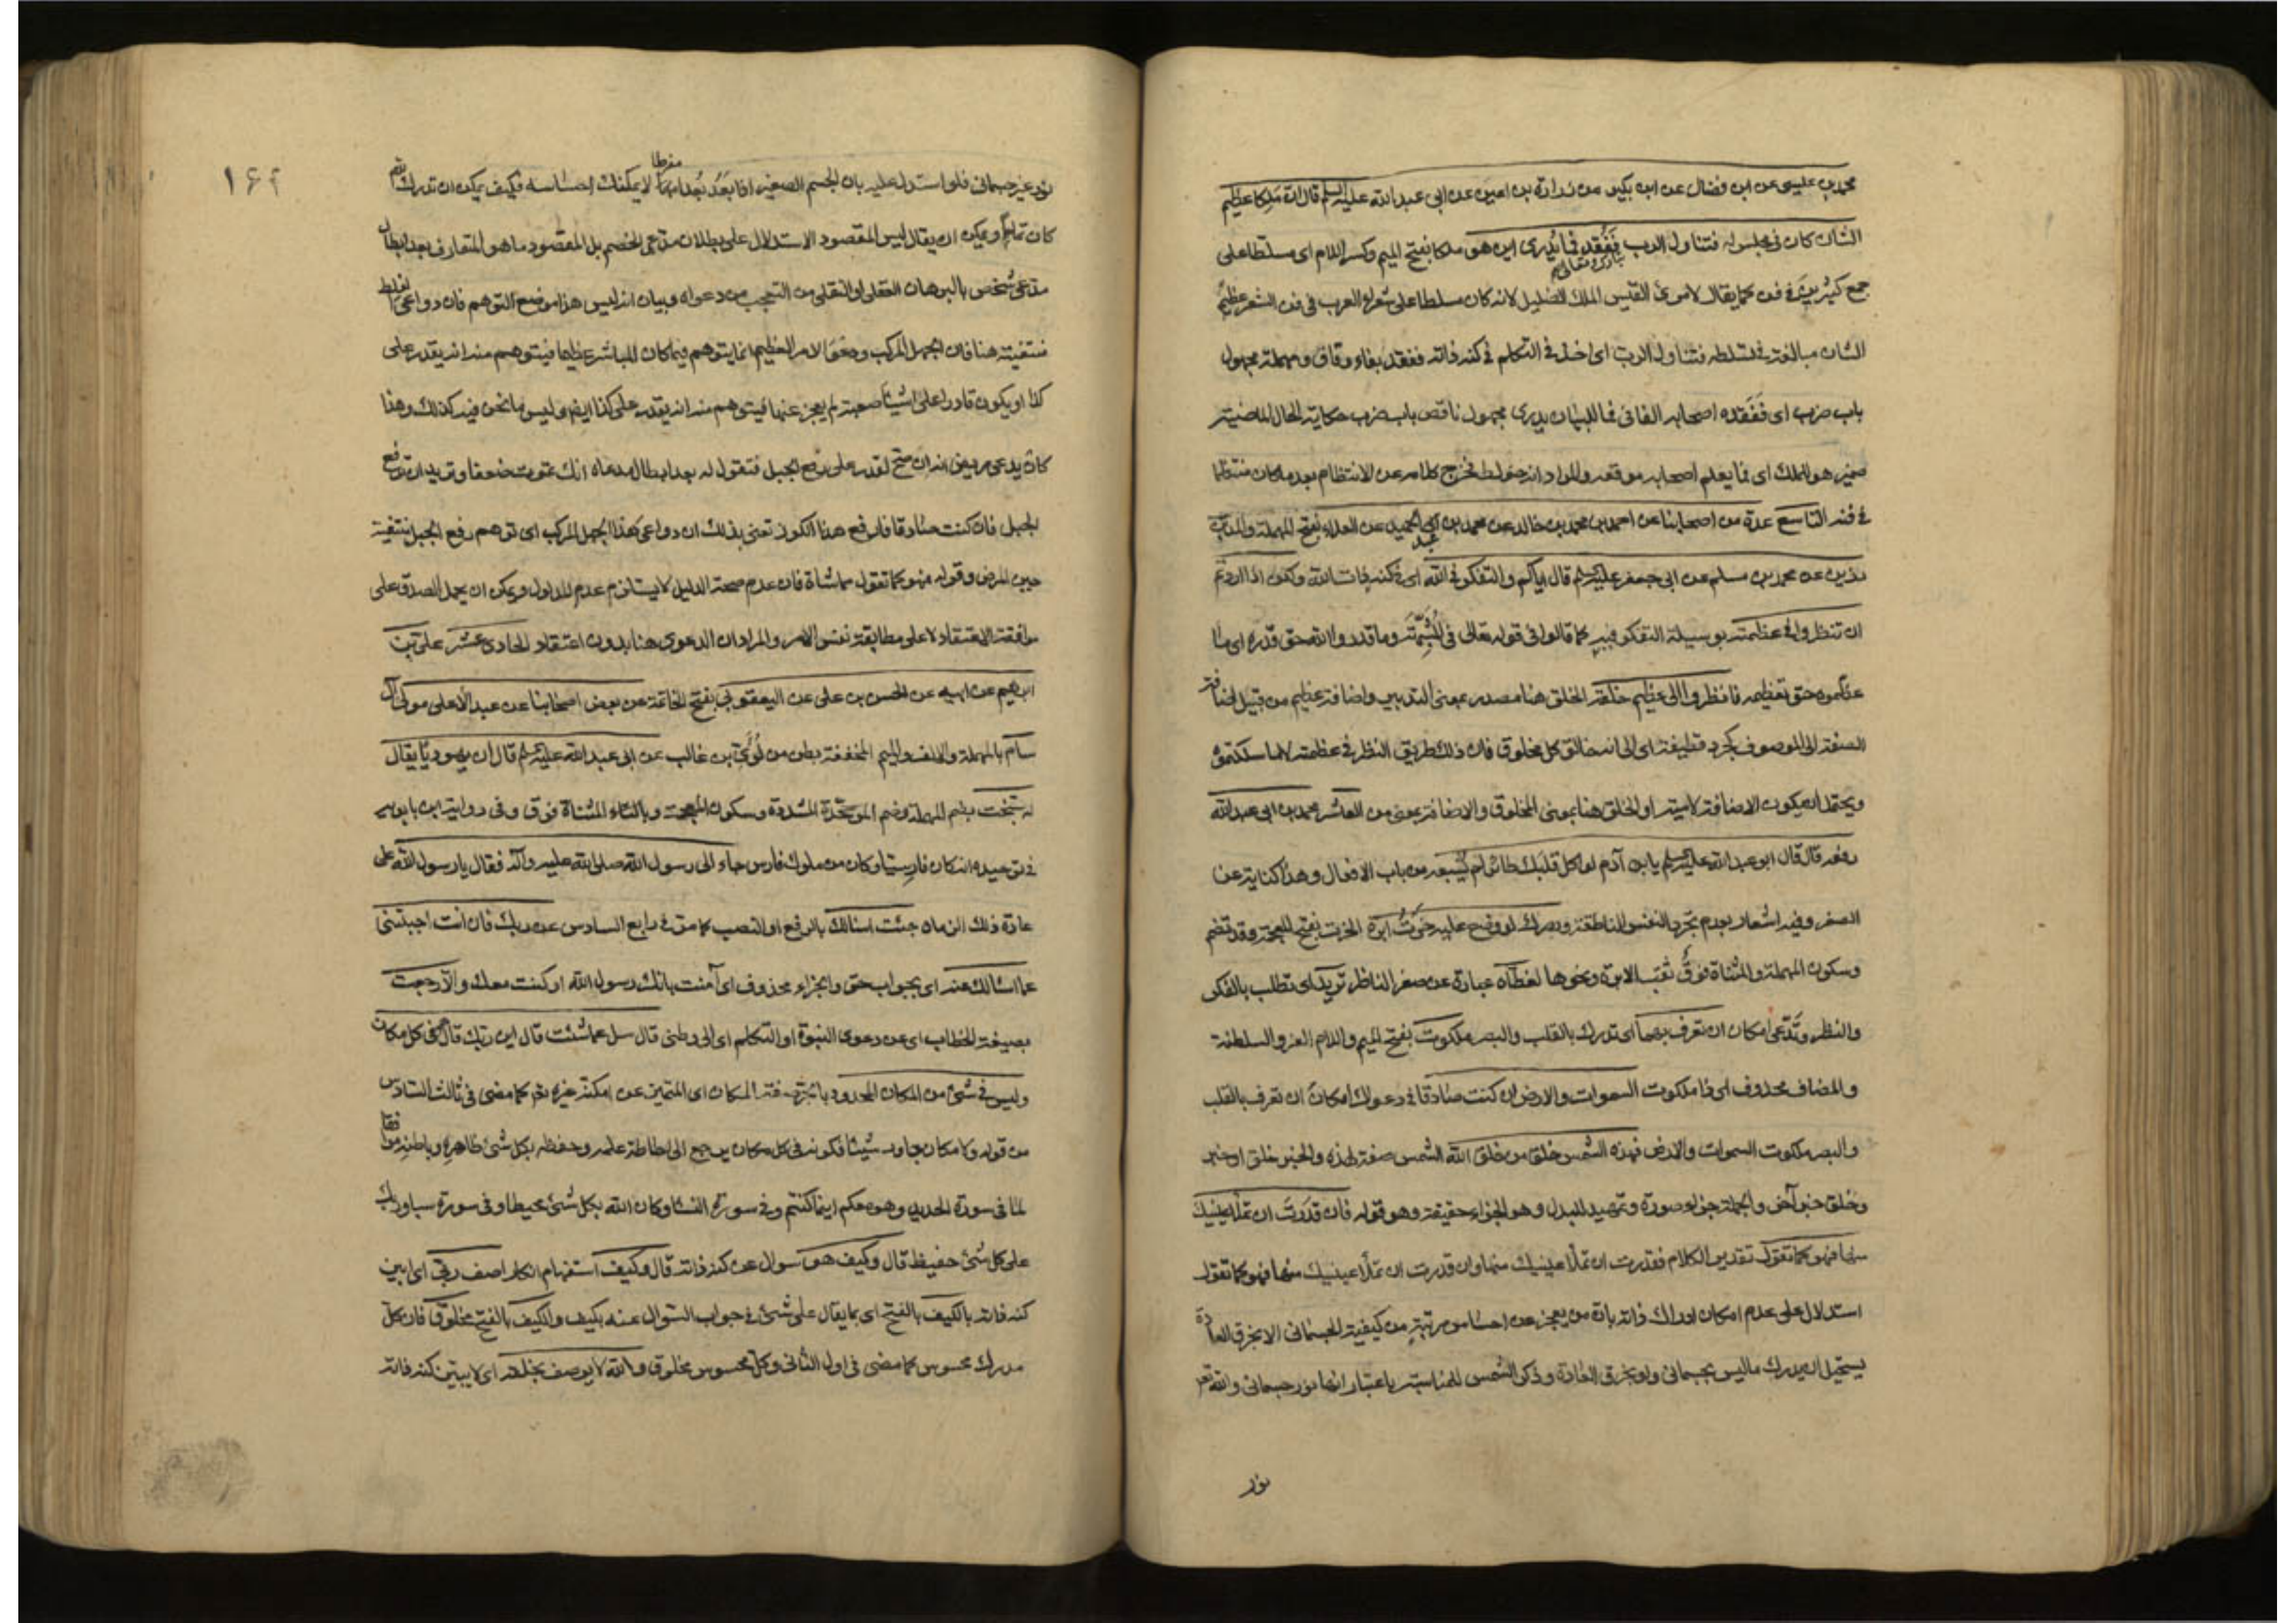 محمد بن عيسى عن ابن فضال عن ابن بكير عن زرارة بن اعين عن ابى عبد الله عليه السلم قال ان ملكا عظيم
الشان كان فى مجلس له فتناول الرب ففقد فما يدرى اين هو ملكا بفتح الميم وكسر اللام اى مسلطا على
تبارك وتعالى
جمع كثيرين فى فن كما يقال لامرئ القيس الملك الضليل لانه كان مسلطا على شعراء العرب فى فن الشعر عظيم
الشان مبالغة فى تسلطه فتناول الرب اى اخذ فى التكلم فى كنه ذاته ففقد بفاء وقاف ومهملة مجهول
باب ضرب اى ففقده اصحابه الفائى فما للبيان يدرى مجهول ناقص باب ضرب حكاية الحال الماضية
ضمير هو للملك اى فما يعلم اصحابه موقعه والمراد انه خولط فخرج كلامه عن الانتظام بعد ما كان منتظما
فى فنه التاسع عدة من اصحابنا عن احمد بن محمد بن خالد عن محمد بن عبد الحميد عن العلاء بفتح المهملة والمد بن
رزين عن محمد بن مسلم عن ابى جعفر عليه السلم قال اياكم والتفكر فى الله اى فى كنه ذات الله ولكن اذا اردتم
ان تنظروا فى عظمته بوسيلة التفكر فيه كما قالوا فى قوله تعالى فى وما قدروا الله حق قدره اى ما
عظموه حق تعظيمه فانظروا الى عظيم خلقه الخلق هنا مصدر بمعنى التدبير واضافة عظيم من قبيل اضافة
الصفة الى الموصوف كجرد قطيفة اى الى انه خالق كل مخلوق فان ذلك طريق النظر فى عظمته لا ما سلكتموه
ويحتمل ان يكون الاضافة لامية او الخلق هنا بمعنى المخلوق والاضافة بمعنى من العاشر محمد بن ابى عبد الله
رفعه قال قال ابو عبد الله عليه السلم يا بن آدم لو اكل قلبك طائر لم يشبعه من باب الافعال وهذا كناية عن
الصغر وفيه اشعار بعدم تجرد النفس الناطقة وبصرك لو وضع عليه خرت ابرة الخرت بفتح المعجمة وقد تضم
وسكون المهملة والمثناة فوق ثقب الابرة ونحوها لغطاه عبارة عن صغر الناظر تريد اى تطلب بالفكر
والنظر وتدعى امكان ان تعرف بهما اى تدرك بالقلب والبصر ملكوت بفتح الميم واللام العز والسلطنة
والمضاف محذوف اى ذا ملكوت السموات والارض ان كنت صادقا فى دعواك امكان ان تعرف بالقلب
والبصر ملكوت السموات والارض فهذه الشمس خلق من خلق الله الشمس صفة لهذه والخبر خلق او خبر
وخلق خبر آخر والجملة جزاء صورة وتمهيد للبدل وهو الجزاء حقيقة وهو قوله فان قدرت ان تملأ عينيك
منها فهو كما تقول تقدير الكلام فقدرت ان تملأ عينيك منها وان قدرت ان تملأ عينيك منها فهو كما تقول
استدلال على عدم امكان ادراك ذاته بان من يعجز عن احساس مرتبة من كيفية الجسمانى الا بخرق العادة
يستحيل ان يدرك ما ليس بجسمانى ولو بخرق العادة وذكر الشمس للمناسبة باعتبار انها نور جسمانى والله تعـ
نور
۱۶۶
نور غير جسمانى فلو استدل عليه بان الجسم الصغير اذا بعد بعدا مفرطا لا يمكنك احساسه فكيف يمكن ان تدرك الله
كان تماما ويمكن ان يقال ليس المقصود الاستدلال على بطلان مدعى الخصم بل المقصود ما هو المتعارف بعد ابطال
مدعى شخص بالبرهان العقلى او النقلى من التعجب من دعواه وبيان انه ليس هذا موضع التوهم فان دواعى الغلط
منتفية هنا فان الجهل المركب ودعوى الامر العظيم انما يتوهم فيما كان للمباشر عظيما فيتوهم منه انه يقدر على
كذا او يكون قادرا على اشياء صعبة لم يعجز عنها فيتوهم منه انه يقدر على كذا ايضا وليس ما نحن فيه كذلك وهذا
كان يدعى مريض انه ان صح لقدر على رفع الجبل فتقول له بعد ابطال مدعاه انك تموت ضعفا وتريد ان ترفع
الجبل فان كنت صادقا فارفع هذا الكوز تعنى بذلك ان دواعى هذا الجهل المركب اى توهم رفع الجبل منتفية
حين المرض وقوله فهو كما تقول مماشاة فان عدم صحة الدليل لا يستلزم عدم المدلول ويمكن ان يحمل الصدق على
موافقة الاعتقاد لا على مطابقة نفس الامر والمراد ان الدعوى هنا بدون اعتقاد الحادى عشر على بن
ابرهيم عن ابيه عن الحسن بن على عن اليعقوبى بفتح الخاتمة عن بعض اصحابنا عن عبد الاعلى مولى آل
سام بالمهملة والالف والميم المخففة بطن من لؤى بن غالب عن ابى عبد الله عليه السلم قال ان يهوديا يقال
له سبخت بضم المهملة وضم الموحدة المشددة وسكون المعجمة وبالتاء المثناة فوق وفى رواية ابن بابويه
فى توحيده انه كان فارسيا وكان من ملوك فارس جاء الى رسول الله صلى الله عليه وآله فقال يا رسول الله على
عادة ذلك الزمان جئت اسالك بالرفع او النصب كما مر فى رابع السادس عن ربك فان انت اجبتنى
عما اسالك عنه اى بجواب حق والجزاء محذوف اى آمنت بانك رسول الله او كنت معك والا رجعت
بصيغة الخطاب اى عن دعوى النبوة او التكلم اى الى وطنى قال سل عما شئت قال اين ربك قال هو فى كل مكان
وليس فى شئ من المكان المحدود بالجر صفة المكان اى المتميز عن امكنة غيره تعـ كما مضى فى ثالث السادس
من قوله ولا مكان جاور شيئا فكونه فى كل مكان يرجع الى احاطة علمه وحفظه بكل شئ ظاهره وباطنه موافقا
لما فى سورة الحديد وهو معكم اينما كنتم وفى سورة النساء وكان الله بكل شئ محيطا وفى سورة سبا وربك
على كل شئ حفيظ قال وكيف هو سوال عن كنه ذاته قال وكيف استفهام انكار اصف ربى اى ابين
كنه ذاته بالكيف بالفتح اى بما يقال على شئ فى جواب السوال عنه بكيف والكيف بالفتح مخلوق فان كل
مدرك محسوس كما مضى فى اول الثانى وكل محسوس مخلوق والله لا يوصف بخلقه اى لا يبين كنه ذاته